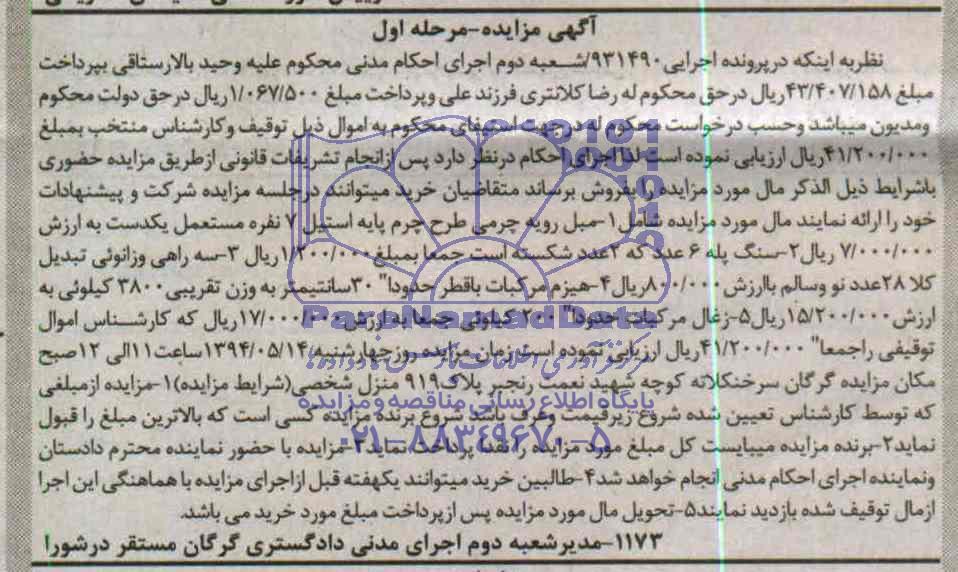 آگهی مزایده-مرحله اول
نظربه اینکه درپرونده اجرایی۹۳۱۴۹۰/شعبه دوم اجرای احکام مدنی محکوم علیه وحید بالارستاقی بپرداخت
مبلغ ۴۳/۴۰۷/۱۵۸ریال درحق محکوم له رضا کلانتری فرزند علی وپرداخت مبلغ ۱/۰۶۷/۵۰۰ریال درحق دولت محکوم
ومدیون میباشد وحسب درخواست محکوم له درجهت استیفای محکوم به اموال ذیل توقیف وکارشناس منتخب بمبلغ
۴۱/۲۰۰/۰۰۰ریال ارزیابی نموده است لذا اجرای احکام درنظر دارد پس ازانجام تشریفات قانونی ازطریق مزایده حضوری
باشرایط ذیل الذکر مال مورد مزایده را بفروش برساند متقاضیان خرید میتوانند درجلسه مزایده شرکت و پیشنهادات
خود را ارائه نمایند مال مورد مزایده شامل۱-مبل رویه چرمی طرح چرم پایه استیل ۷ نفره مستعمل یکدست به ارزش
۷/۰۰۰/۰۰۰ ریال۲-سنگ پله ۶ عدد که ۲عدد شکسته است جمعا بمبلغ ۱/۲۰۰/۰۰۰ریال ۳-سه راهی وزانوئی تبدیل
کلا ۲۸عدد نو وسالم باارزش ۸۰۰/۰۰۰ریال۴-هیزم مرکبات باقطر حدودا" ۳۰سانتیمتر به وزن تقریبی۳۸۰۰ کیلوئی به
ارزش۱۵/۲۰۰/۰۰۰ریال۵-زغال مرکبات حدودا" ۲۰۰ کیلوئی جمعا به ارزش ۱۷/۰۰۰/۰۰۰ریال که کارشناس اموال
توقیفی راجمعا" ۴۱/۲۰۰/۰۰۰ریال ارزیابی نموده است زمان مزایده روزچهارشنبه ۱۳۹۴/۰۵/۱۴ساعت۱۱الی ۱۲صبح
مکان مزایده گرگان سرخنکلاته کوچه شهید نعمت رنجبر پلاک۹۱۹ منزل شخصی(شرایط مزایده)۱-مزایده ازمبلغی
که توسط کارشناس تعیین شده شروع زیرقیمت وعرف باشد شروع برنده مزایده کسی است که بالاترین مبلغ را قبول
نماید۲-برنده مزایده میبایست کل مبلغ مورد مزایده را نقدا پرداخت نماید۳-مزایده با حضور نماینده محترم دادستان
ونماینده اجرای احکام مدنی انجام خواهد شد۴-طالبین خرید میتوانند یکهفته قبل ازاجرای مزایده با هماهنگی این اجرا
ازمال توقیف شده بازدید نمایند۵-تحویل مال مورد مزایده پس ازپرداخت مبلغ مورد خرید می باشد.
۱۱۷۳-مدیرشعبه دوم اجرای مدنی دادگستری گرگان مستقر درشورا
ParsNamadData
پایگاه اطلاع رسانی مناقصه و مزایده
۰۲۱-۸۸۳۴۹۶۷۰-۵